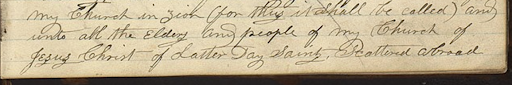 my Church in Zion (for thus it shall be called) and
unto all the Elders and people of my Church of
Jesus Christ of Latter Day Saints, Scattered abroad